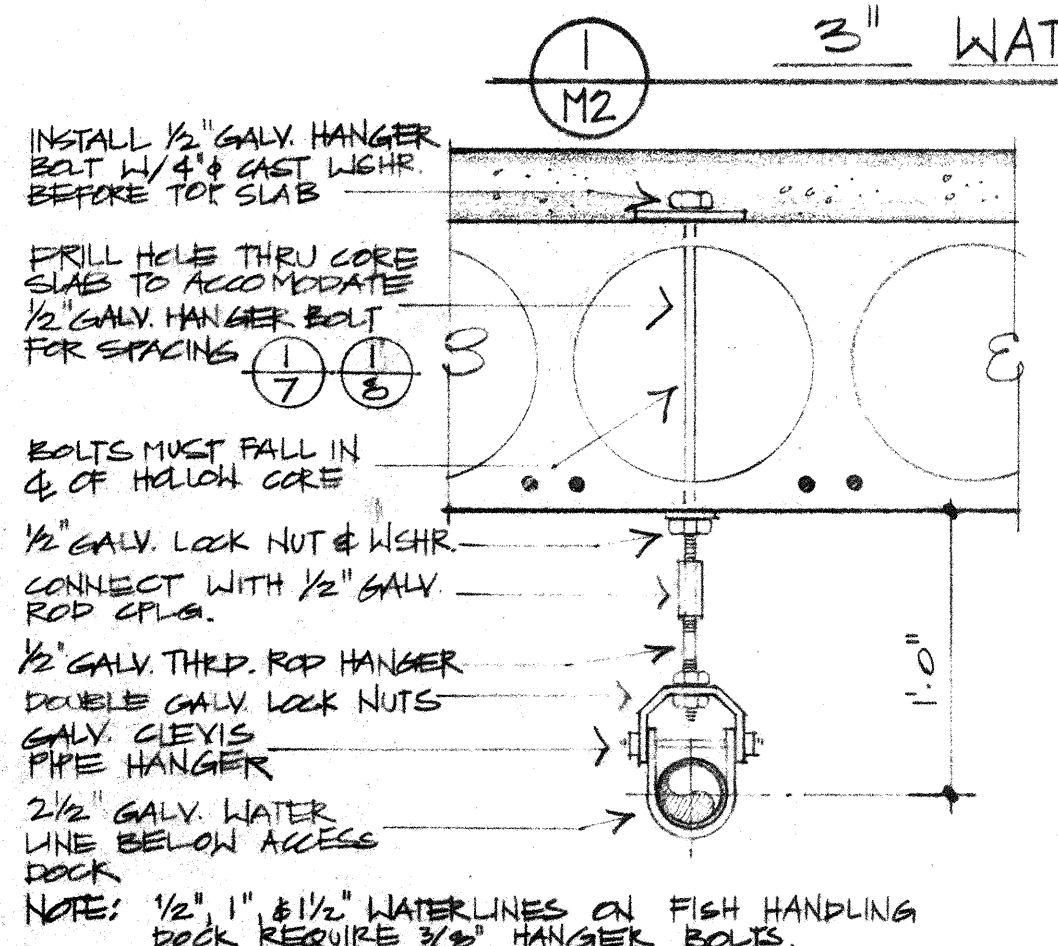 1
M2
3" WAT
INSTALL 1/2" GALV. HANGER
BOLT W/4"ϕ CAST WSHR.
BEFORE TOP SLAB
DRILL HOLE THRU CORE
SLAB TO ACCOMODATE
1/2" GALV. HANGER BOLT
FOR SPACING
1
7
1
8
BOLTS MUST FALL IN
℄ OF HOLLOW CORE
1/2" GALV. LOCK NUT & WSHR.
CONNECT WITH 1/2" GALV.
ROD CPLG.
1/2" GALV. THRD. ROD HANGER
DOUBLE GALV. LOCK NUTS
GALV. CLEVIS
PIPE HANGER
2 1/2" GALV. WATER
LINE BELOW ACCESS
DOCK
1'.0"
NOTE: 1/2", 1", & 1 1/2" WATERLINES ON FISH HANDLING
DOCK REQUIRE 3/8" HANGER BOLTS.